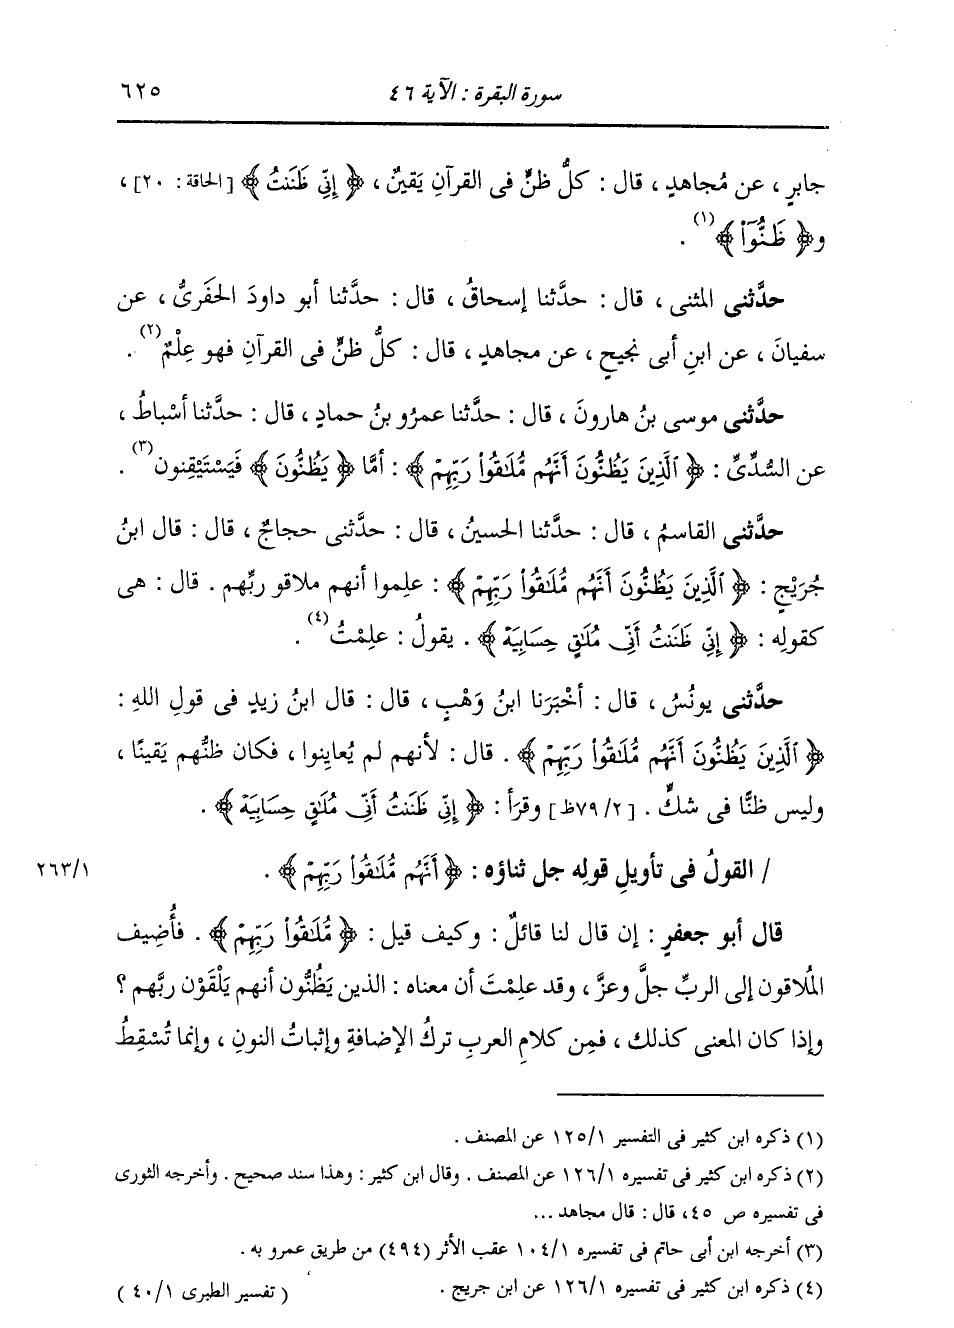 سورة البقرة : الآية ٤٦ ٦٢٥
جابرٍ ، عن مُجاهدٍ ، قال : كلُّ ظنٍّ فى القرآنِ يَقينٌ ، ﴿ إِنِّي ظَنَنتُ ﴾ [ الحاقة : ٢٠] ،
و﴿ ظَنُّوٓا۟ ﴾(١) .
حدَّثنى المثنى ، قال : حدَّثنا إسحاقُ ، قال : حدَّثنا أبو داودَ الحَفَرىُّ ، عن
سفيانَ ، عن ابنِ أبى نَجيحٍ ، عن مجاهدٍ ، قال : كلُّ ظنٍّ فى القرآنِ فهو عِلْمٌ(٢) .
حدَّثنى موسى بنُ هارونَ ، قال : حدَّثنا عمرُو بنُ حمادٍ ، قال : حدَّثنا أسْباطُ ،
عن السُّدِّىِّ : ﴿ ٱلَّذِينَ يَظُنُّونَ أَنَّهُم مُّلَـٰقُوا۟ رَبِّهِمْ ﴾ : أمَّا ﴿ يَظُنُّونَ ﴾ فَيَسْتَيْقِنون(٣) .
حدَّثنى القاسمُ ، قال : حدَّثنا الحسينُ ، قال : حدَّثنى حجاجٌ ، قال : قال ابنُ
جُرَيْجٍ : ﴿ ٱلَّذِينَ يَظُنُّونَ أَنَّهُم مُّلَـٰقُوا۟ رَبِّهِمْ ﴾ : علِموا أنهم ملاقو ربِّهم . قال : هى
كقولِه : ﴿ إِنِّي ظَنَنتُ أَنِّي مُلَـٰقٍ حِسَابِيَهْ ﴾ . يقولُ : علِمْتُ(٤) .
حدَّثنى يونُسُ ، قال : أخْبَرَنا ابنُ وَهْبٍ ، قال : قال ابنُ زيدٍ فى قولِ اللهِ :
﴿ ٱلَّذِينَ يَظُنُّونَ أَنَّهُم مُّلَـٰقُوا۟ رَبِّهِمْ ﴾ . قال : لأنهم لم يُعاينوا ، فكان ظنُّهم يَقينًا ،
وليس ظنًّا فى شكٍّ . [٧٩/٢ظ] وقرَأ : ﴿ إِنِّي ظَنَنتُ أَنِّي مُلَـٰقٍ حِسَابِيَهْ ﴾ .
/ القولُ فى تأويلِ قولِه جل ثناؤه : ﴿ أَنَّهُم مُّلَـٰقُوا۟ رَبِّهِمْ ﴾ . ٢٦٣/١
قال أبو جعفرٍ : إن قال لنا قائلٌ : وكيف قيل : ﴿ مُّلَـٰقُوا۟ رَبِّهِمْ ﴾ . فأُضِيف
المُلاقون إلى الربِّ جلَّ وعزَّ ، وقد علِمْتَ أن معناه : الذين يَظُنُّون أنهم يَلْقَوْن ربَّهم ؟
وإذا كان المعنى كذلك ، فمِن كلامِ العربِ تركُ الإضافةِ وإثباتُ النونِ ، وإنما تُسْقِطُ
(١) ذكره ابن كثير فى التفسير ١٢٥/١ عن المصنف .
(٢) ذكره ابن كثير فى تفسيره ١٢٦/١ عن المصنف . وقال ابن كثير : وهذا سند صحيح . وأخرجه الثورى
فى تفسيره ص ٤٥، قال : قال مجاهد ...
(٣) أخرجه ابن أبى حاتم فى تفسيره ١٠٤/١ عقب الأثر (٤٩٤) من طريق عمرو به .
(٤) ذكره ابن كثير فى تفسيره ١٢٦/١ عن ابن جريج . ( تفسير الطبرى ٤٠/١ )